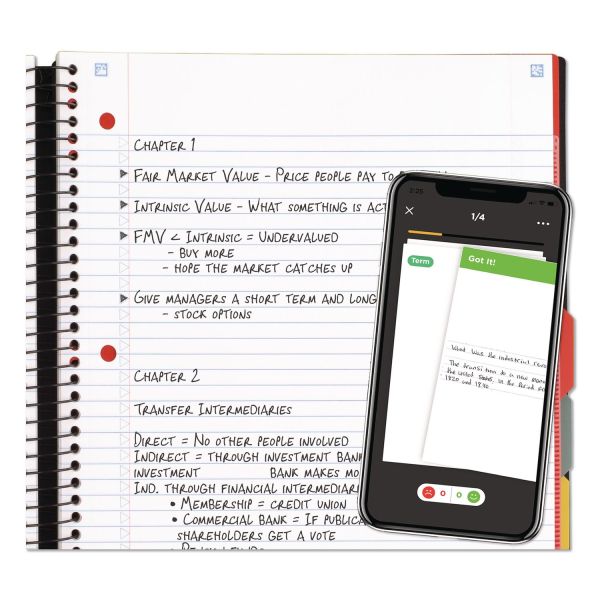 CHAPTER 1
FAIR MARKET VALUE - PRICE PEOPLE PAY TO
INTRINSIC VALUE - WHAT SOMETHING IS ACT
FMV < INTRINSIC = UNDERVALUED
- BUY MORE
- HOPE THE MARKET CATCHES UP
GIVE MANAGERS A SHORT TERM AND LONG
- STOCK OPTIONS
CHAPTER 2
TRANSFER INTERMEDIARIES
DIRECT = NO OTHER PEOPLE INVOLVED
INDIRECT = THROUGH INVESTMENT BAN
INVESTMENT BANK MAKES MO
IND. THROUGH FINANCIAL INTERMEDIAR
• MEMBERSHIP = CREDIT UNION
• COMMERCIAL BANK = IF PUBLIC
SHAREHOLDERS GET A VOTE
2:25
1/4
Term
Got It!
What was the industrial
The transition to a new
the United States, in the period
1820 and 1840.
0 0